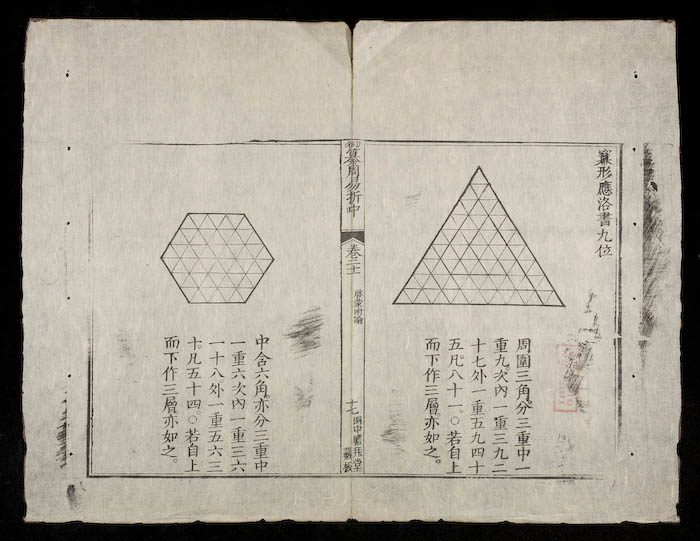 冪形應洛書九位
周圍三角分三重中一
重九次內一重三九二
十七外一重五九四十
五凡八十一〇若自上
而下作三層亦如之。
御纂周易折中
卷二十一
啓蒙附論
十七
中含六角亦分三重中
一重六次內一重三六
一十八外一重五六三
十凡五十四〇若自上
而下作三層亦如之。